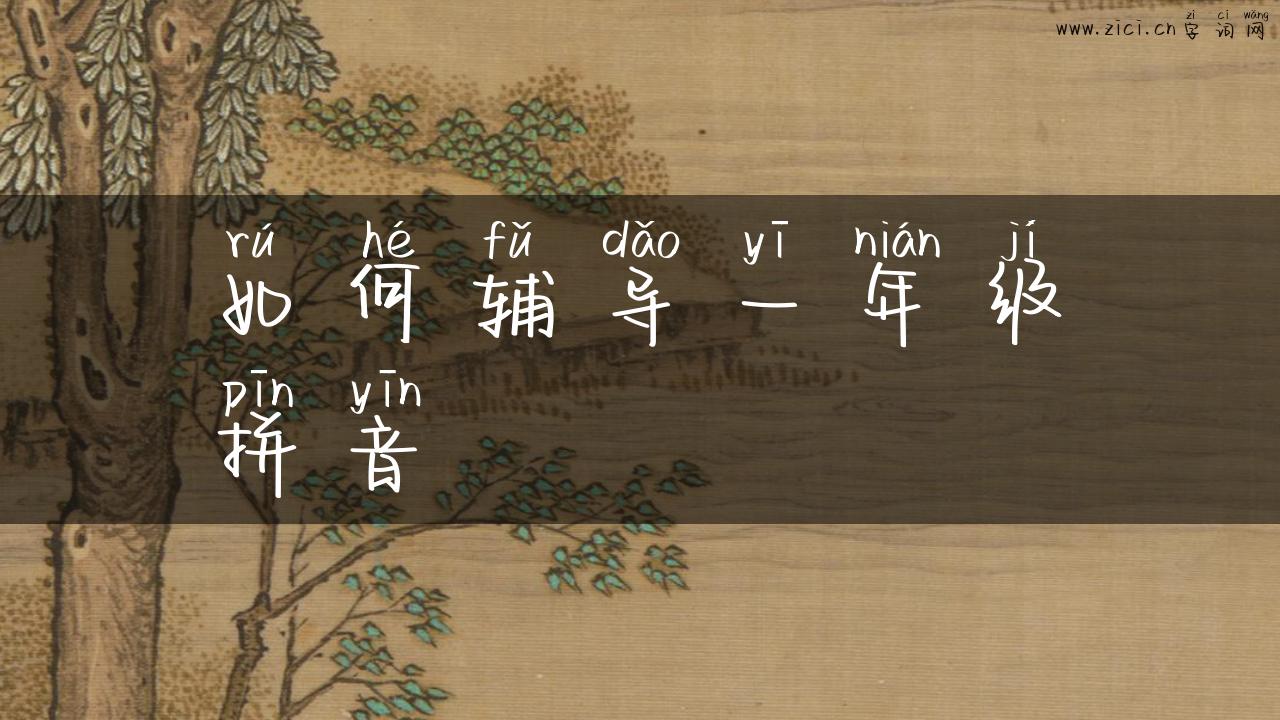 zì cí wǎng
www.zici.cn 字词网
rú hé fǔ dǎo yī nián jí
如何辅导一年级
pīn yīn
拼音